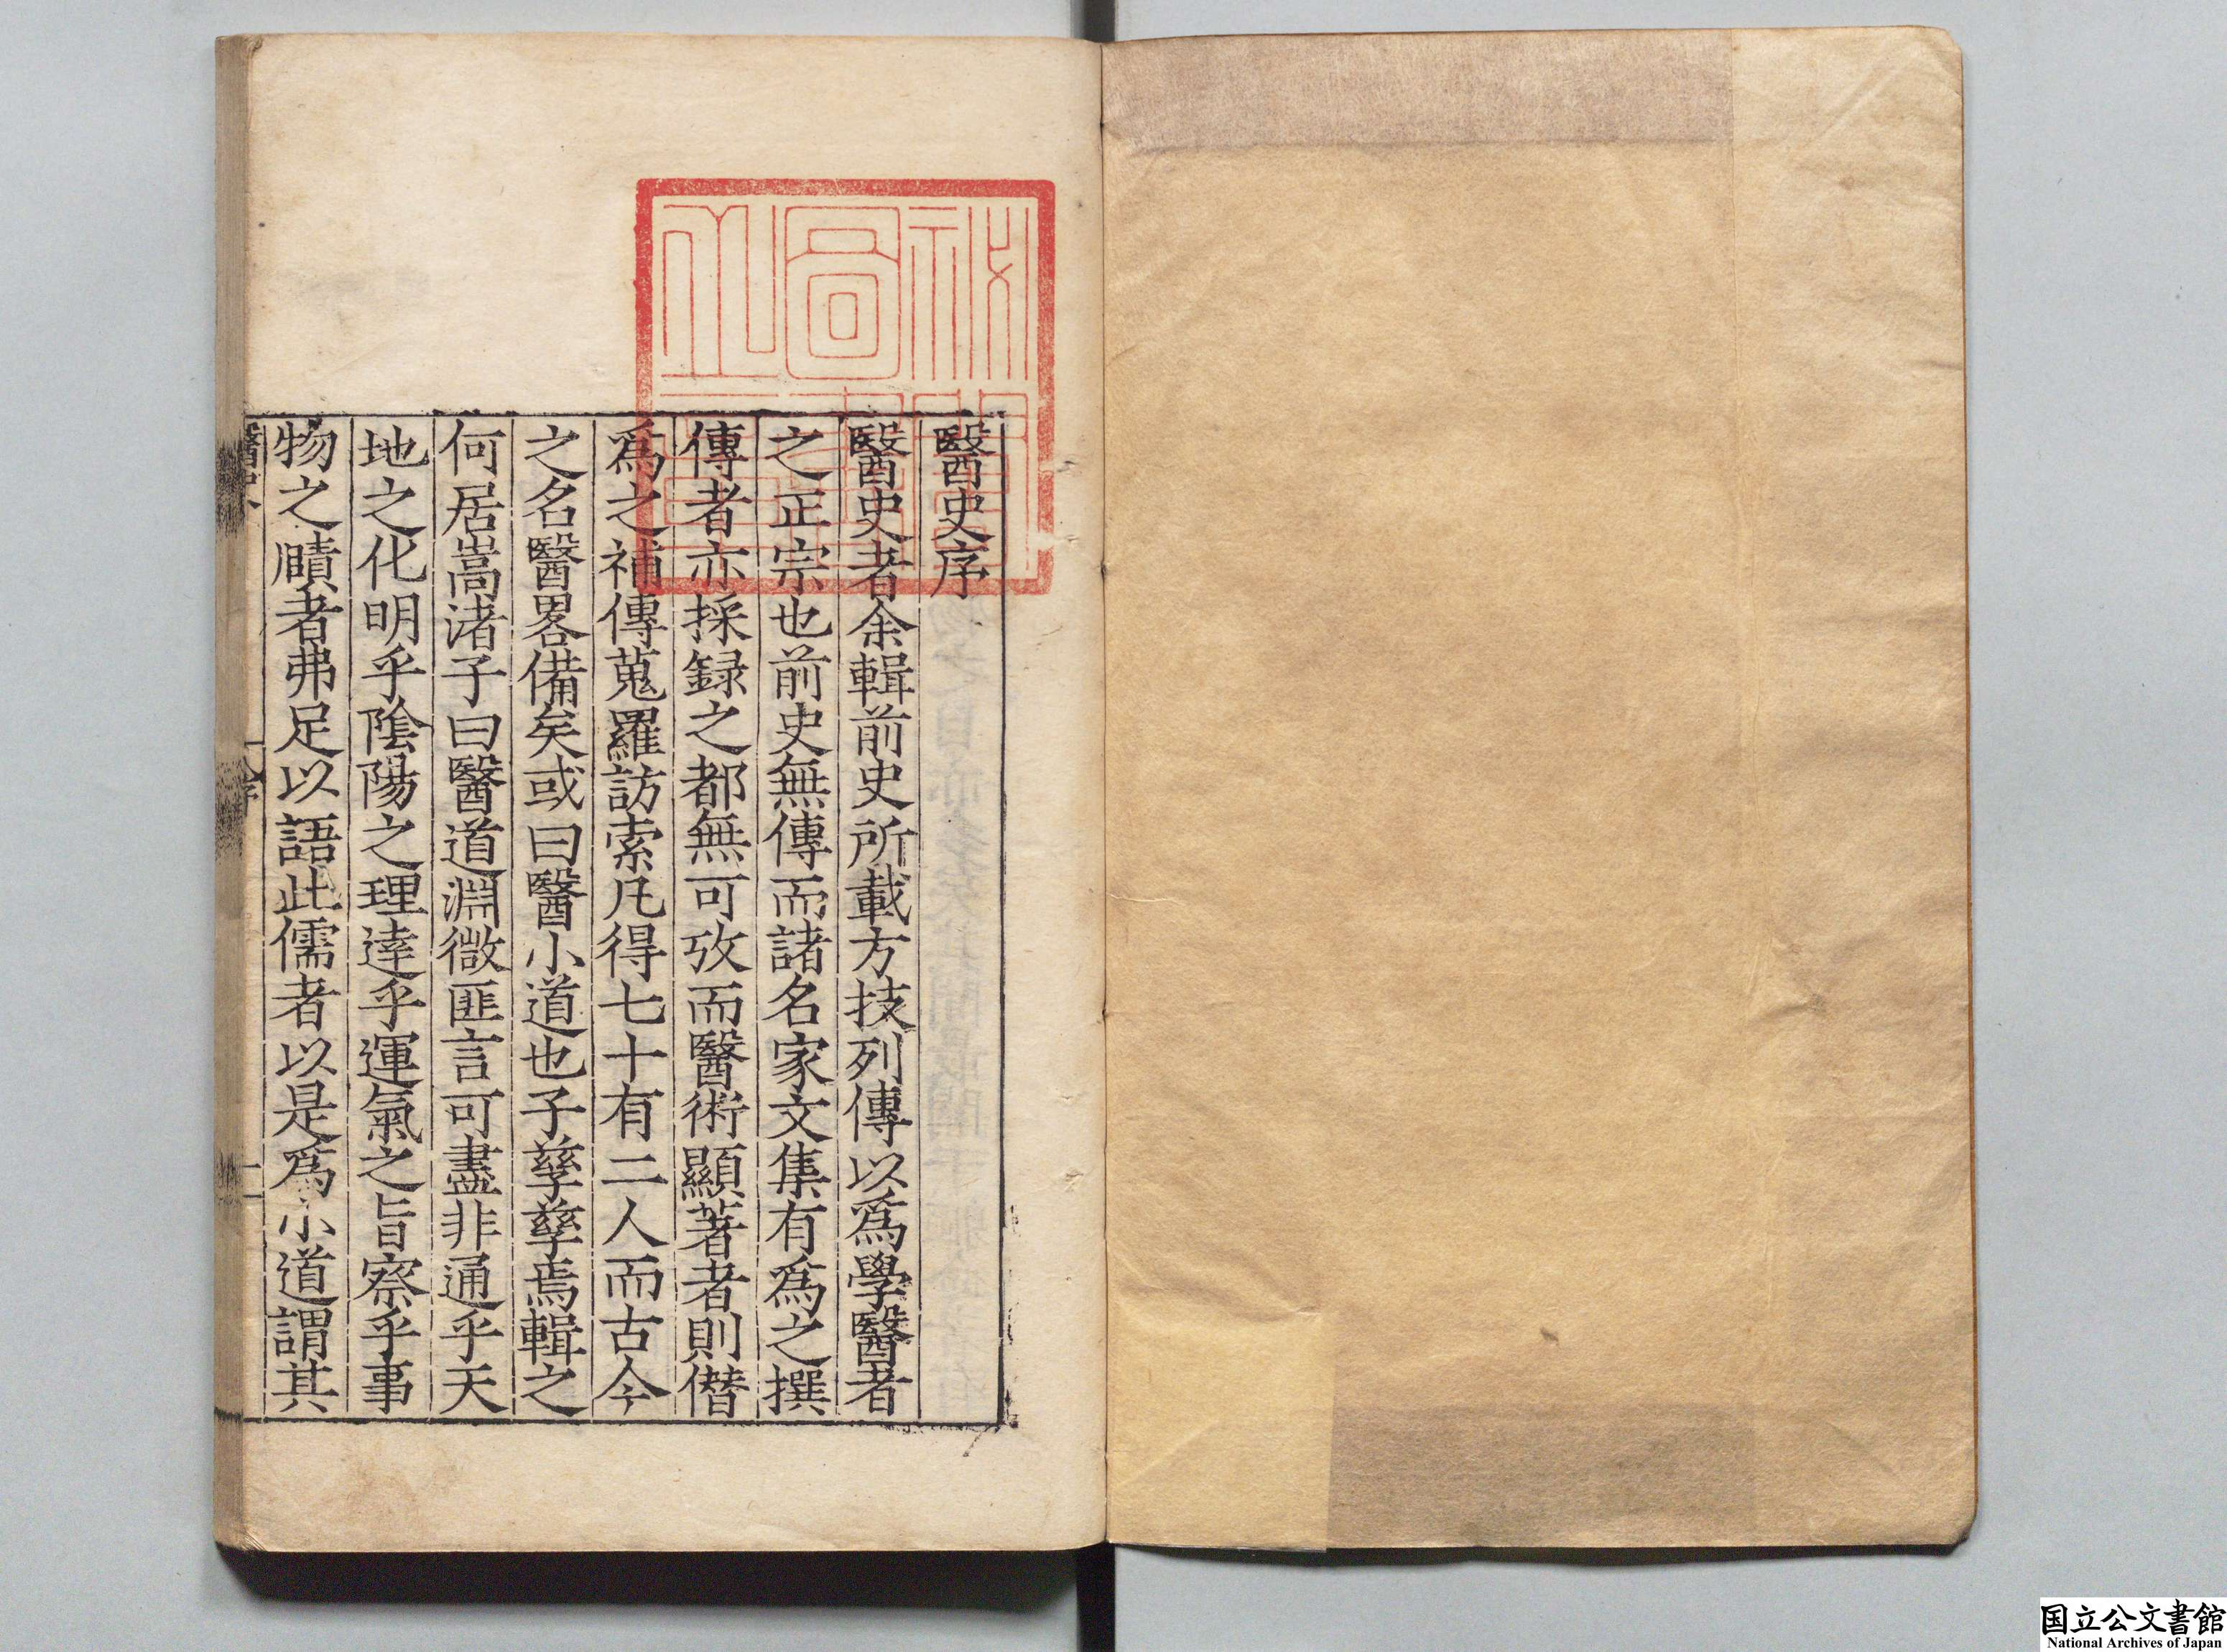 醫史序
醫史者余輯前史所載方技列傳以爲學醫者
之正宗也前史無傳而諸名家文集有爲之撰
傳者亦採録之都無可攷而醫術顯著者則僭
爲之補傳蒐羅訪索凡得七十有二人而古今
之名醫畧備矣或曰醫小道也子孳孳焉輯之
何居嵩渚子曰醫道淵微匪言可盡非通乎天
地之化明乎陰陽之理達乎運氣之旨察乎事
物之賾者弗足以語此儒者以是爲小道謂其
国立公文書館
National Archives of Japan